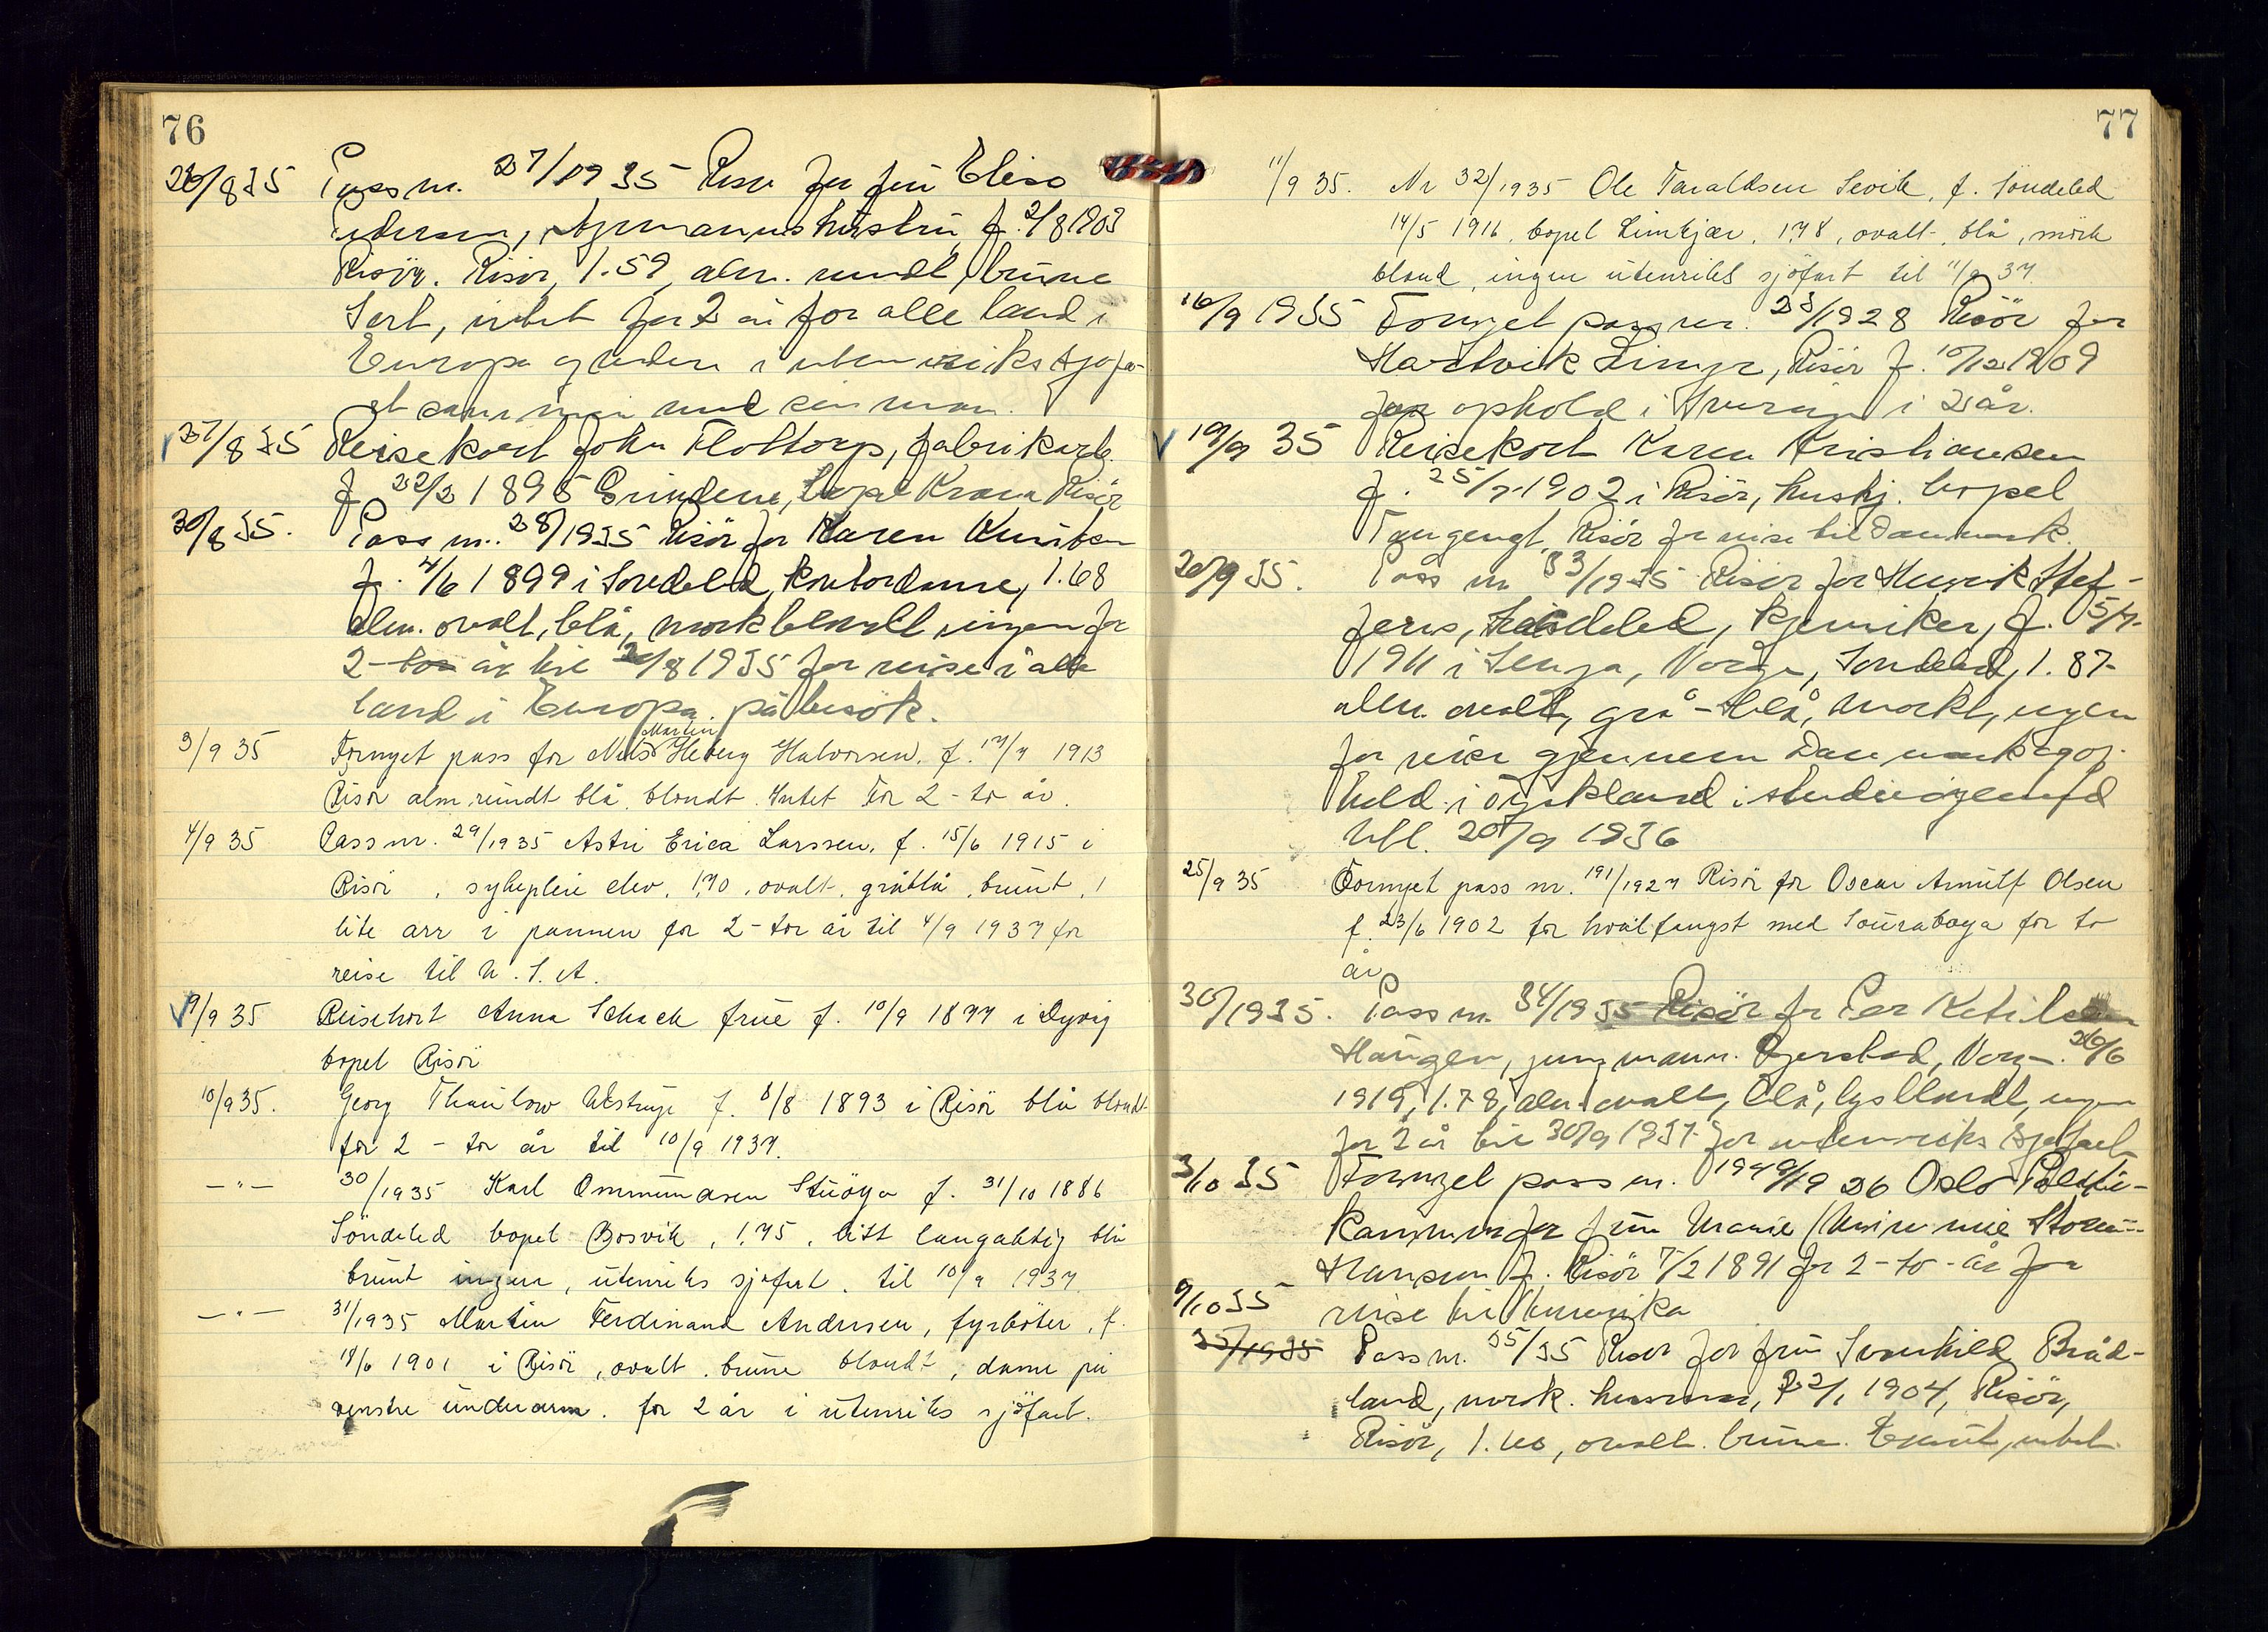 76
26/8 35 Pass nr. 27/1935 Risør for fru Elise
Pedersen, styrmannshustru f. 2/8 1903
Risør. Risør, 1.59, alm. rundt, brune
Sort, intet for 2 år for alle land i
Europa og leden i utenriks sjøfa-
rt sammen med sin man.
27/8 35 Reisekort John Flottorp, fabrikarb.
f. 22/2 1895 Grindene, bopel Krana Risör
30/8 35. Pass nr. 28/1935 Risör for Karen Knutsen
f. 4/6 1899 i Söndeled, Kontordame, 1.68
alm. ovalt, blå, mörkblondt, ingen for
2-to år til 30/8 1935 for reise i alle
land i Europa på besök.
3/9 35 Fornyet pass for Nils Martin Heberg Halvorsen. f. 17/7 1913
Risör alm. rundt blå, blondt. Intet For 2 - to år.
4/9 35 Pass nr. 29/1935 Astri Erica Larssen, f. 15/6 1915 i
Risör, sykepleie elev, 1,70, ovalt, gråblå, brunt, 1
lite arr i pannen for 2 - tor år til 4/9 1937 for
reise til U.S.A.
9/9 35 Reisekort Anna Schack frue f. 10/9 1877 i Dyvig
bopel Risör
10/9 35. Georg Thaulow f. 8/8 1893 i Risör blå blondt
for 2 - tor år til 10/9 1937.
— " — 30/1935 Karl Ommundsen Stuöya f. 31/10 1886
Söndeled bopel Bosvik, 1,75, litt langaktig blå
brunt ingen, utenriks sjøfart. til 10/9 1937.
— " — 31/1935 Martin Ferdinand Andresen, fyrböter, f.
18/6 1901 i Risör, ovalt. brune blondt, dame på
venstre underarm. for 2 år i utenriks sjöfart.
77
11/9 35. Nr 32/1935 Ole Taraldsen Sevik, f. Söndeled
14/5 1916, bopel Limkjær, 1,78, ovalt, blå, mörk
blond, ingen utenriks sjöfart til 11/9 37.
16/9 1935 Fornyet pass nr. 23/1928 Risör for
Hartvik Linge, Risör f. 10/12 1909
for ophold i Sverige i 2 år.
19/9 35 Reisekort Karen Kristiansen
f. 25/7 1902 i Risör, hushj. bopel
Tangengt, Risör for reise til Danmark.
20/9 35. Pass nr 33/1935 Risör for Henrik Stef-
fens, Söndeled, kjemiker, f. 5/7-
1911 i Senja, Norge, Söndeled, 1.87-
alm. ovalt, grå-blå, mörkt, ingen
for reise gjennem Danmark og op-
hold i Tyskland i studieöiemed
Utl. 20/9 1936
25/9 35 Fornyet pass nr. 191/1927 Risör for Oscar Arnulf Olsen
f. 23/6 1902 for hvalfangst med Sourabaya for to
år
30/1935. Pass nr. 34/1935 Risör for Per Ketilsen
Haugen, jungmann. Gjerstad, Norge. 26/6
1919, 1.78, alm. ovalt, blå, lysblondt, ingen
for 2 år til 30/9 1937 for utenriks sjøfart
3/10 35 Fornyet pass nr. 1949/1926 Oslo Politi-
kammer for fru Marie
Hansen f. Risör 7/2 1891 for 2 - to - år for
9/10 35 reise til Amerika
35/1935 Pass nr. 35/35 Risör for fru Svanhild Bråd-
land, norsk. husmor, f. 2/1 1904, Risör,
Risör, 1.60, ovalt. brune. brunt, intet.